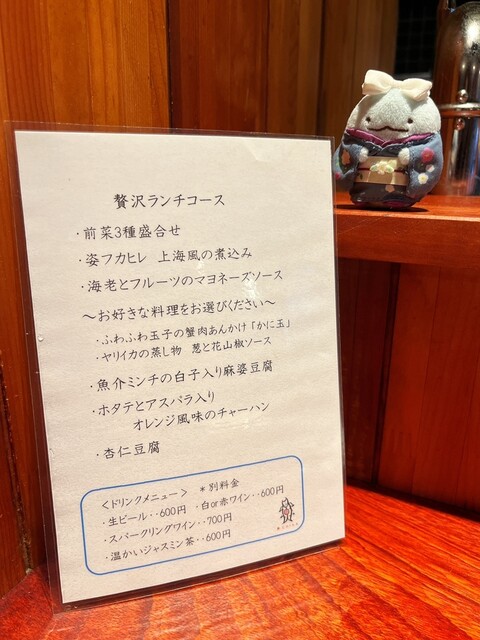 贅沢ランチコース
・前菜3種盛合せ
・姿フカヒレ 上海風の煮込み
・海老とフルーツのマヨネーズソース
～お好きな料理をお選びください～
・ふわふわ玉子の蟹肉あんかけ「かに玉」
・ヤリイカの蒸し物 葱と花山椒ソース
・魚介ミンチの白子入り麻婆豆腐
・ホタテとアスパラ入り
オレンジ風味のチャーハン
・杏仁豆腐
＜ドリンクメニュー＞ ＊別料金
・生ビール・・600円 ・白or赤ワイン・・600円
・スパークリングワイン・・700円
・温かいジャスミン茶・・600円